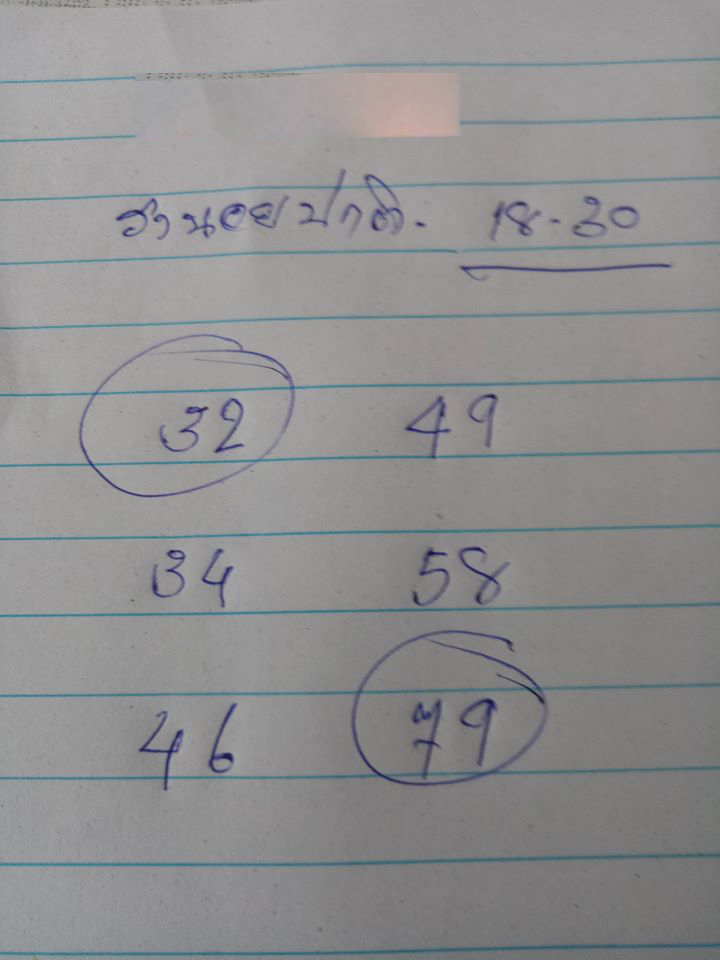 ฮานอยปกติ. 18-30
32 49
34 58
46 79